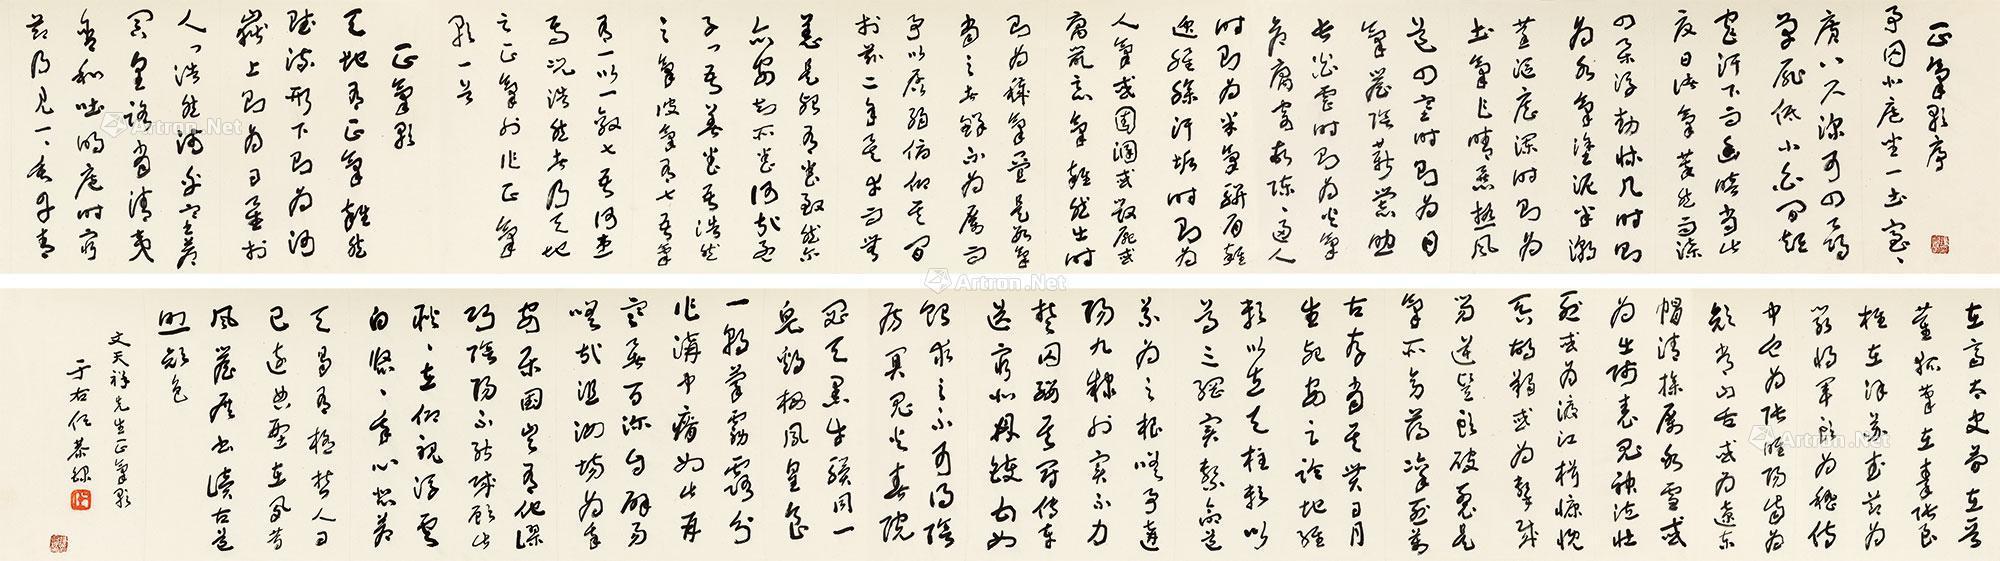 正氣歌序
予囚北庭坐一土室室
廣八尺深可四尋
單扉低小白間短
窄汙下而幽暗當此
夏日諸氣萃然雨潦
四集浮動牀几時則
為水氣塗泥半潮
蒸漚歷瀾時則為
土氣乍晴暴熱風
道四塞時則為日
氣簷陰薪爨助
長炎虐時則為火氣
倉腐寄頓陳陳逼人
時則為米氣駢肩雜
遝腥臊汗垢時則為
人氣或圊溷或毀屍或
腐鼠惡氣雜然出時
則為穢氣疊是數氣
當之者鮮不為厲而
予以孱弱俯仰其間
於茲二年矣幸而無
恙是殆有養致然爾
亦安知所養何哉孟
子曰吾善養吾浩然
之氣彼氣有七吾氣
有一以一敵七吾何患
焉況浩然者乃天地
之正氣也作正氣
歌一首
正氣歌
天地有正氣雜然
賦流形下則為河
嶽上則為日星於
人曰浩然沛乎塞蒼
冥皇路當清夷
含和吐明庭時窮
節乃見一一垂丹青
在齊太史簡在晉
董狐筆在秦張良
椎在漢蘇武節為
嚴將軍頭為嵇侍
中血為張睢陽齒為
顏常山舌或為遼東
帽清操厲冰雪或
為出師表鬼神泣壯
烈或為渡江楫慷慨
吞胡羯或為擊賊
笏逆豎頭破裂是
氣所旁薄凜烈萬
古存當其貫日月
生死安足論地維
賴以立天柱賴以
尊三綱實繫命道
義為之根嗟予遘
陽九隸也實不力
楚囚纓其冠傳車
送窮北鼎鑊甘如
飴求之不可得陰
房闃鬼火春院
閟天黑牛驥同一
皂雞棲鳳凰食
一朝蒙霧露分
作溝中瘠如此再
寒暑百沴自辟易
嗟哉沮洳場為我
安樂國豈有他繆
巧陰陽不能賊顧此
耿耿在仰視浮雲
白悠悠我心悲蒼
天曷有極哲人日
已遠典型在夙昔
風簷展書讀古道
照顏色
文天祥先生正氣歌
于右任恭錄
Artron.Net
Artron.Net
Artron.Net
Artron.Net
Artron.Net